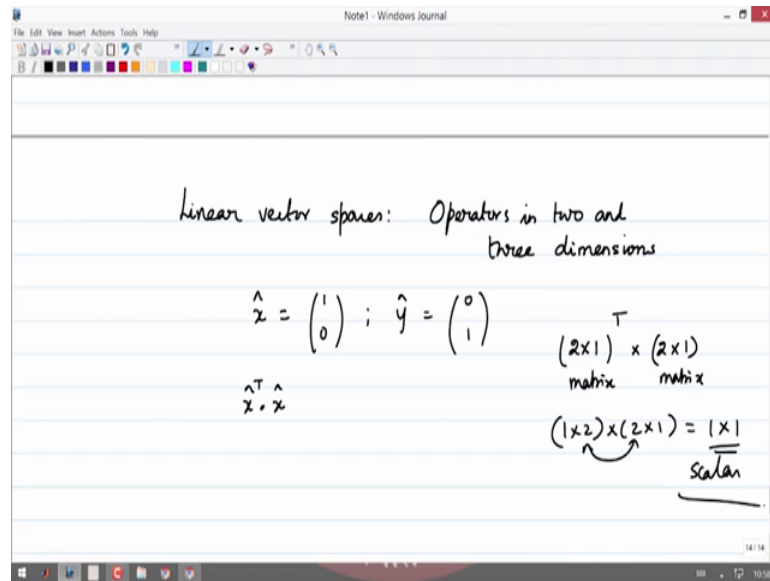 Note1 - Windows Journal
File Edit View Insert Actions Tools Help
B I
Linear vector spaces: Operators in two and
three dimensions
x̂ = (1 0) ; ŷ = (0 1)
x̂ᵀ . x̂
(2x1)ᵀ x (2x1)
matrix matrix
(1x2)x(2x1) = 1x1
scalar
14/14
10:58